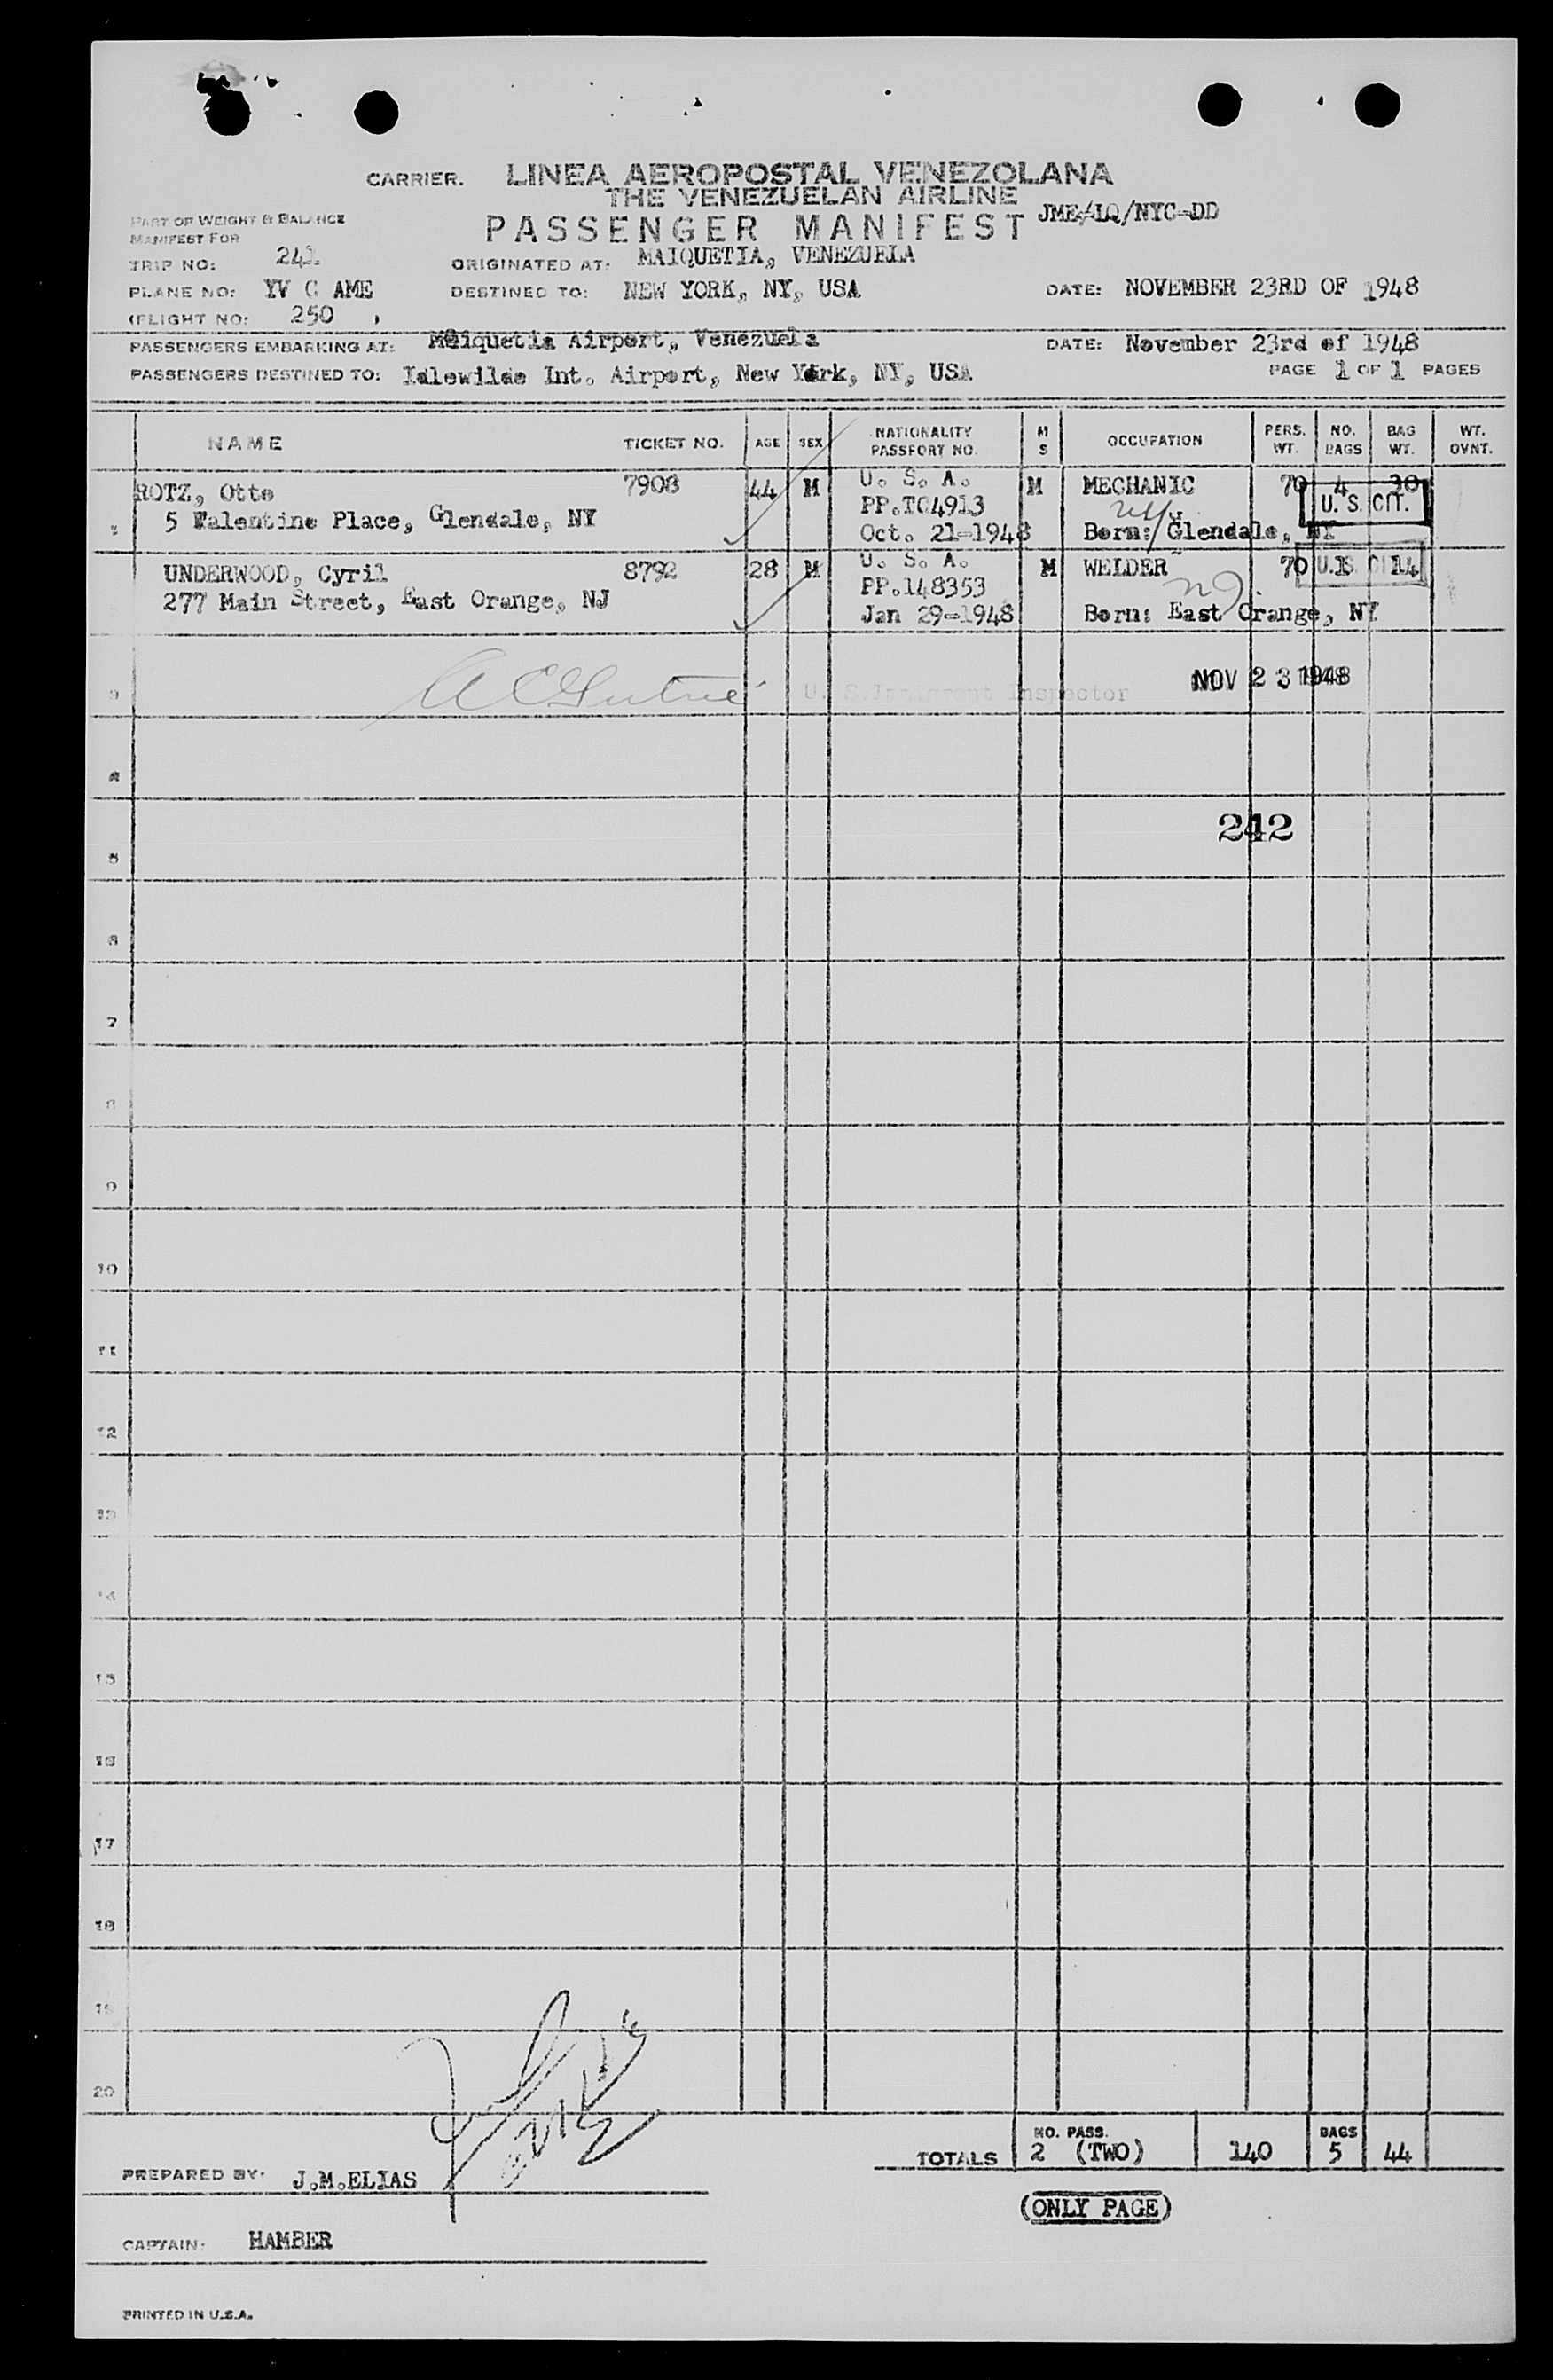 CARRIER. LINEA AEROPOSTAL VENEZOLANA
THE VENEZUELAN AIRLINE
PASSENGER MANIFEST JME/LQ/NYC-DD
PART OF WEIGHT & BALANCE
MANIFEST FOR
TRIP NO: 241 ORIGINATED AT: MAIQUETIA, VENEZUELA
PLANE NO: YV C AME DESTINED TO: NEW YORK, NY, USA DATE: NOVEMBER 23RD OF 1948
(FLIGHT NO: 250 )
PASSENGERS EMBARKING AT: Maiquetia Airport, Venezuela DATE: November 23rd of 1948
PASSENGERS DESTINED TO: Idlewilde Int. Airport, New York, NY, USA PAGE 1 OF 1 PAGES
NAME TICKET NO. AGE SEX NATIONALITY PASSPORT NO. M S OCCUPATION PERS. WT. NO. BAGS BAG WT. WT. OVNT.
ROTZ, Otto 7908 44 M U. S. A. M MECHANIC 70 4 30
5 Valentine Place, Glendale, NY PP.TC4913 U. S. CIT.
Oct. 21-1948 Born: Glendale, NY
UNDERWOOD, Cyril 8792 28 M U. S. A. M WELDER 70 1 14
U.S. CIT
277 Main Street, East Orange, NJ PP.148353 NJ
Jan 29-1948 Born: East Orange, NY
3 U. S. Immigrant Inspector NOV 23 1948
4
242
5
6
7
8
9
10
11
12
13
14
15
16
17
18
19
20
TOTALS NO. PASS. 2 (TWO) 140 BAGS 5 44
PREPARED BY: J.M.ELIAS
(ONLY PAGE)
CAPTAIN: HAMBER
PRINTED IN U.S.A.